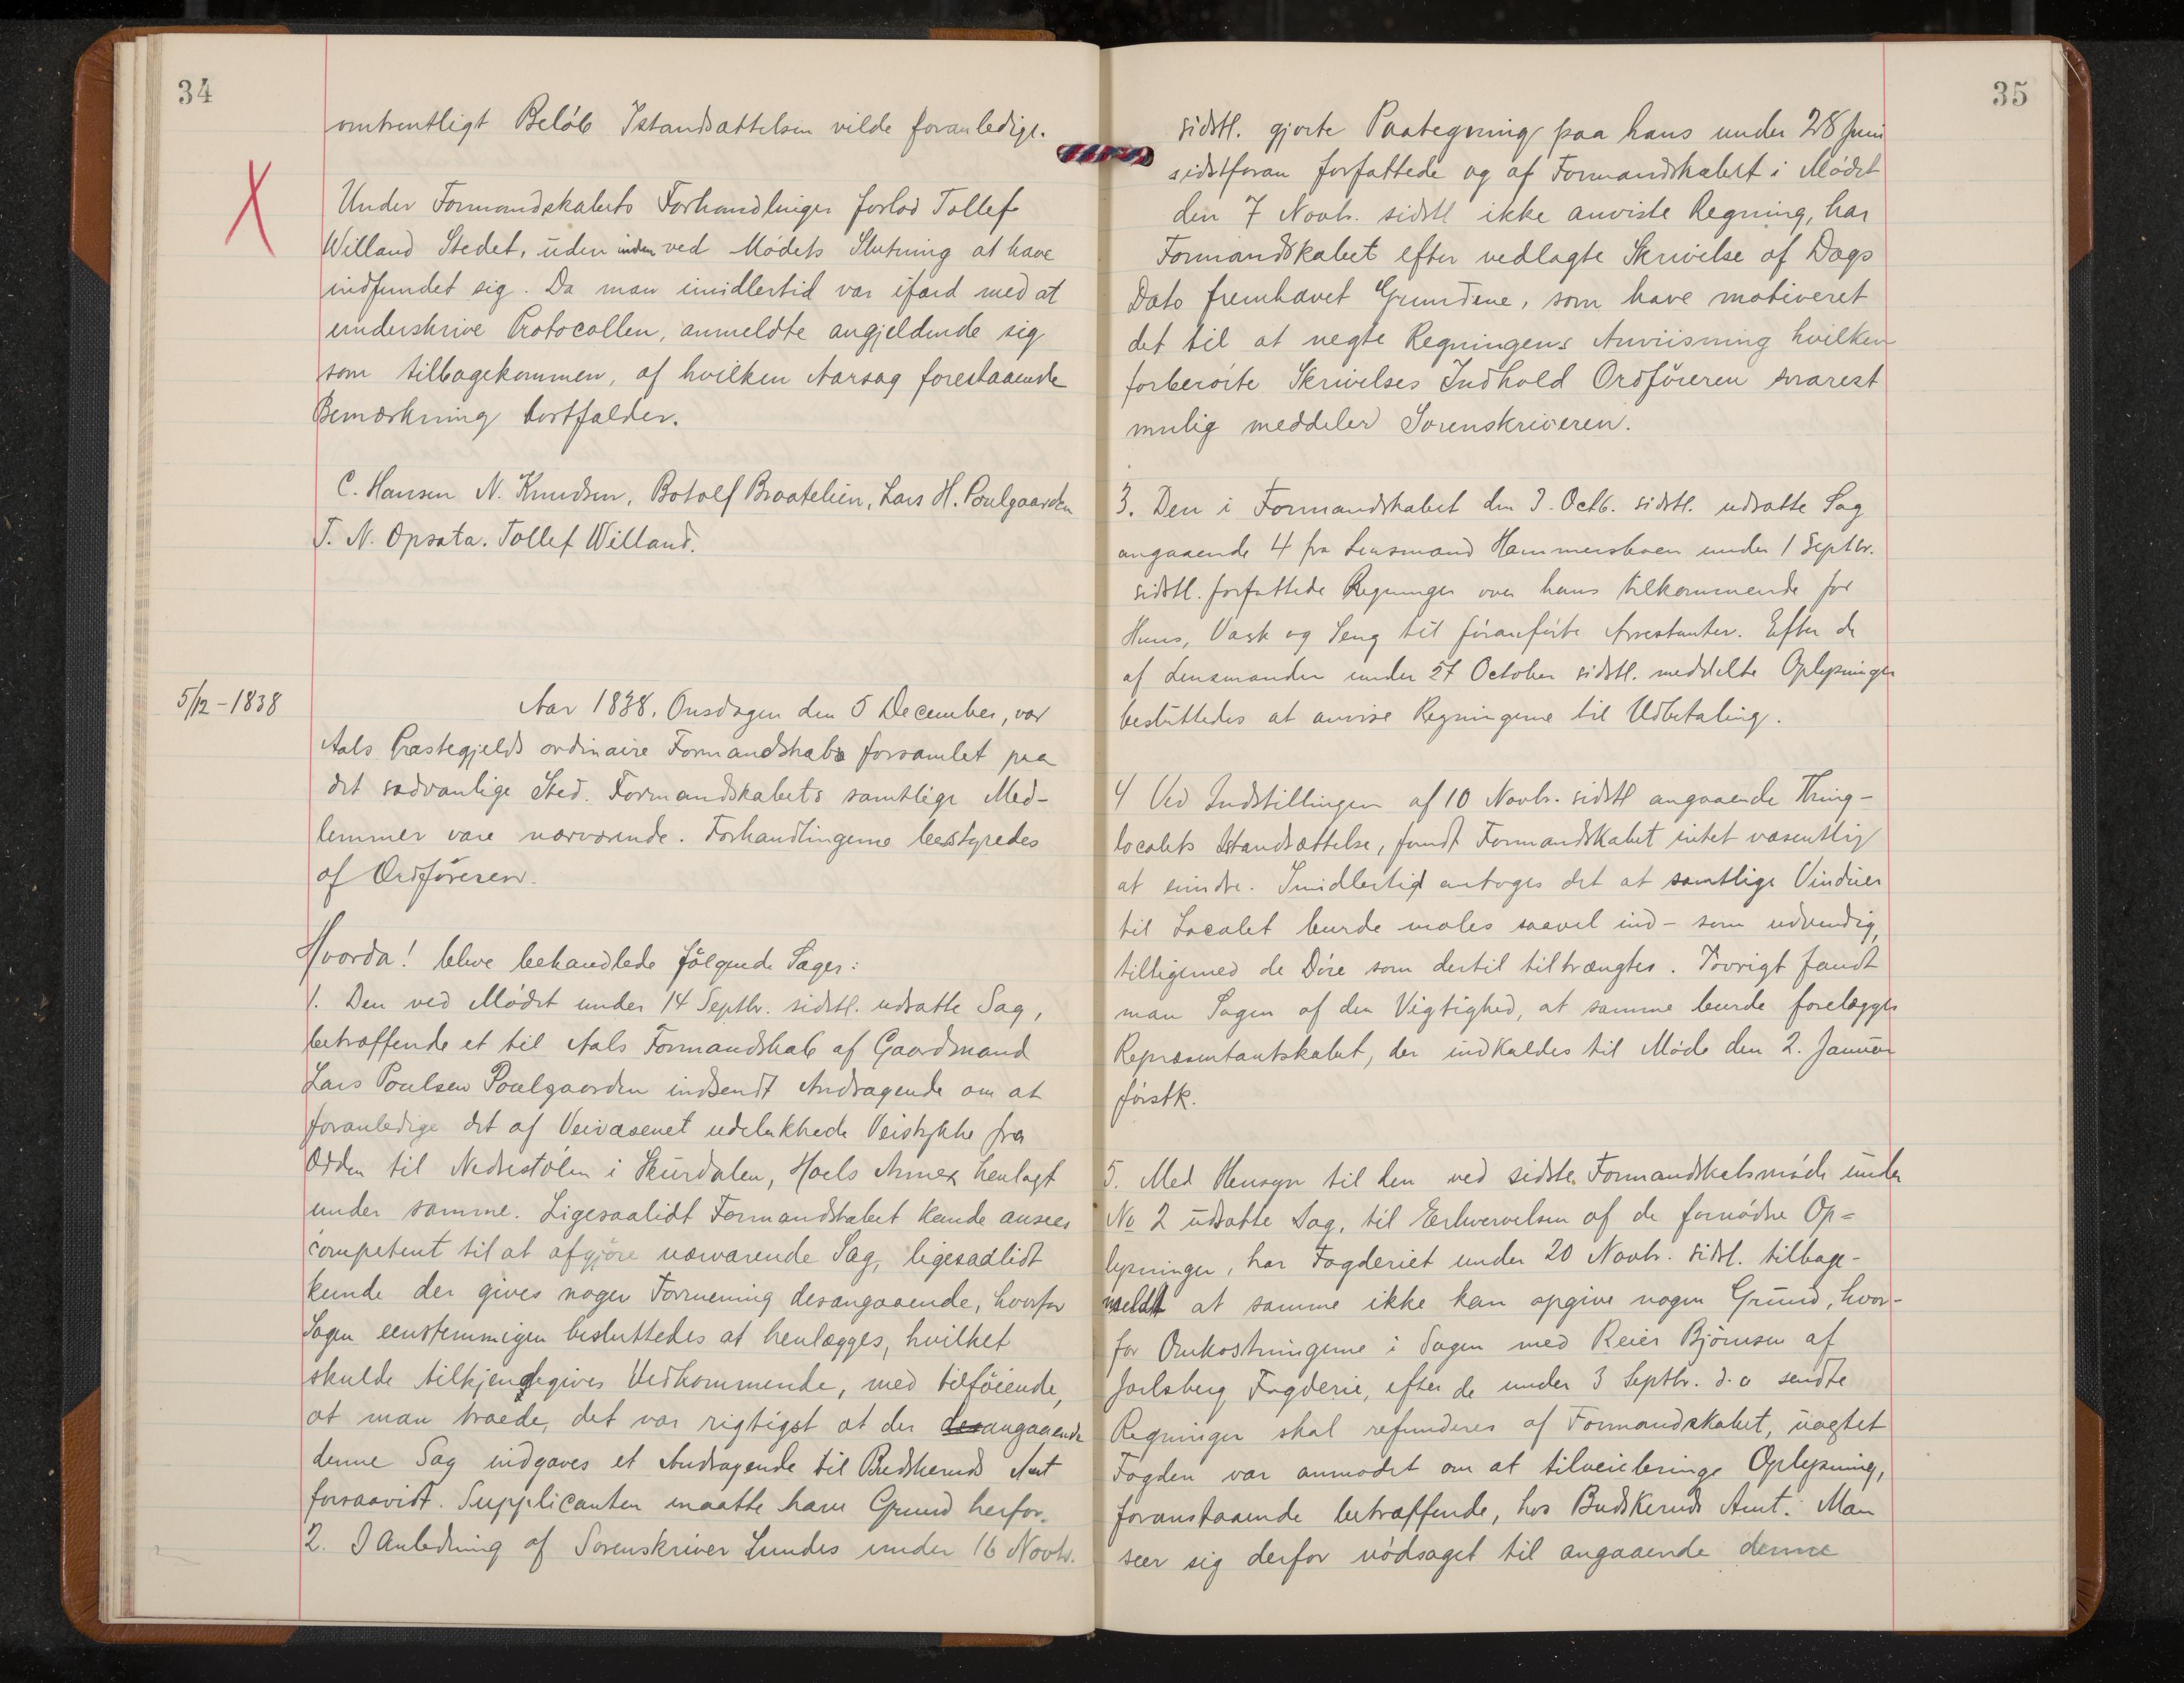 34
omtrentligt Beløb Istandsættelsen vilde foranledige.
Under Formandskabets Forhandlinger forlod Tollef
Willand Stedet, uden inden ved Mødets Slutning at have
indfundet sig. Da man imidlertid var ifærd med at
underskrive Protocollen, anmeldte angjeldende sig
som tilbagekommen, af hvilken Aarsag forestaaende
Bemærkning bortfalder.
C. Hansen N. Knudsen, Botolf Braatelien, Lars H. Poulgaarden
T. N. Opsata. Tollef Willand.
5/12-1838
Aar 1838, Onsdagen den 5 December, var
Aals Præstegjelds ordinaire Formandskab forsamlet paa
det sædvanlige Sted. Formandskabets samtlige Med-
lemmer vare nærværende. Forhandlingerne bestyredes
af Ordføreren.
Hvorda! bleve behandlede følgende Sager:
1. Den ved Mødet under 14 Septbr. sidstl. udsatte Sag,
betræffende et til Aals Formandskab af Gaardmand
Lars Poulsen Poulgaarden indsendt Andragende om at
foranledige det af Veivæsenet udelukkede Veistykke fra
Odden til Nedrestølen i Skurdalen, Hoels Annex henlagt
under samme. Ligesaalidt Formandskabet kunde ansees
competent til at afgjøre nærværende Sag, ligesaalidt
kunde der gives nogen Formening desangaaende, hvorfor
Sagen eenstemmigen besluttedes at henlægges, hvilket
skulde tilkjendegives Vedkommende, med tilføiende,
at man troede, det var rigtigst at der desangaaende
denne Sag indgaves et Andragende til Budskeruds Amt
forsaavidt. Supplicanten maatte have Grund herfor.
2. I Anledning af Sorenskriver Lundes under 16 Novbr.
35
sidstl. gjorte Paategning paa hans under 28 Juni
sidstforan forfattede og af Formandskabet i Mødet
den 7 Novbr. sidstl ikke anviste Regning, har
Formandskabet efter vedlagte Skrivelse af Dags
Dato fremhævet Grundene, som have motiveret
det til at negte Regningens Anviisning hvilken
forberørte Skrivelses Indhold Ordføreren snarest
mulig meddeler Sorenskriveren.
3. Den i Formandskabet den 3. Octb. sidstl. udsatte Sag
angaaende 4 fra Lensmand Hammersboen under 1 Septbr.
sidstl. forfattede Regninger over hans tilkommende for
Huus, Vask og Seng til føranførte Arrestanter. Efter de
af Lensmanden under 27 October sidstl. meddelte Oplysninger
besluttedes at anvise Regningerne til Udbetaling.
4 Ved Indstillingen af 10 Novbr. sidstl angaaende Thing-
locålets Istandsættelse, fandt Formandskabet intet væsentlig
at erindre. Imidlertid antoges det at samtlige Vinduer
til Localet burde males saavel ind- som udvendig,
tilligemed de Døre som dertil tiltrængtes. Iøvrigt fandt
man Sagen af den Vigtighed, at samme burde forelægges
Repræsentantskabet, der indkaldes til Møde den 2. Januar
førstk.
5. Med Hensyn til den ved sidste Formandskabsmøde under
No 2 udsatte Sag, til Erhvervelsen af de fornødne Op=
lysninger, har Fogderiet under 20 Novbr. sidstl. tilbage-
meldt at samme ikke kan opgive nogen Grund, hvor-
for Omkostningerne i Sagen med Reier Bjørnsen af
Jarlsberg Fogderie, efter de under 3 Septbr. d. a sendte
Regninger skal refunderes af Formandskabet, uagtet
Fogden var anmodet om at tilveiebringe Oplysning,
foranstaaende betræffende, hos Budskeruds Amt. Man
seer sig derfor nødsaget til angaaende denne